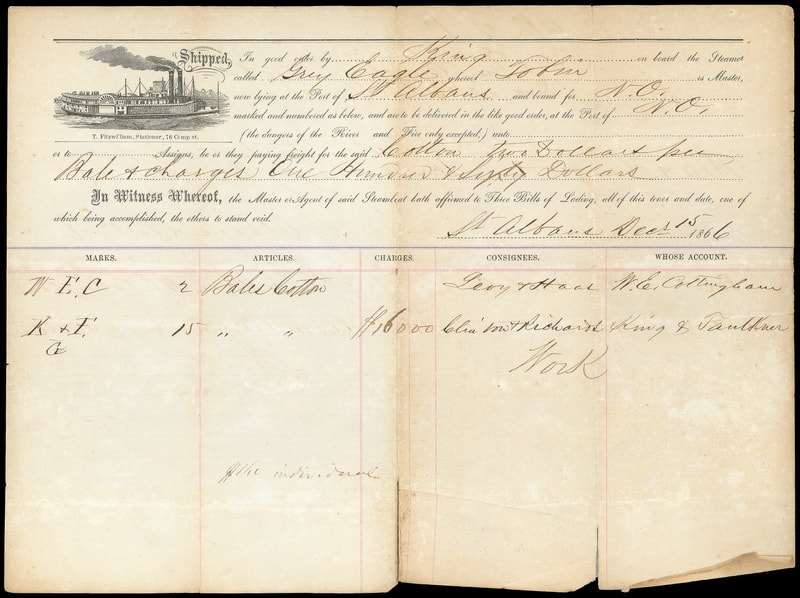 Shipped, In good order by King on board the Steamer
called Grey Eagle whereof Tobin is Master,
now lying at the Port of St Albans and bound for N.O.
marked and numbered as below, and are to be delivered in the like good order, at the Port of N.O.
T. Fitzwilliam, Stationer, 76 Camp st.
(the dangers of the River and Fire only excepted,) unto
or to Assigns, he or they paying freight for the said Cotton two Dollars per
Bale & charges One Hundred & Sixty Dollars
In Witness Whereof, the Master or Agent of said Steamboat hath affirmed to Three Bills of Lading, all of this tenor and date, one of
which being accomplished, the others to stand void.
St Albans Decr 15 1866
MARKS. ARTICLES. CHARGES. CONSIGNEES. WHOSE ACCOUNT.
W E. C 2 Bales Cotton Levy & Haas W. E. Cottingham
K & F. 15 " " $160 00 & Richards King & Faulkner
G
Work
individual